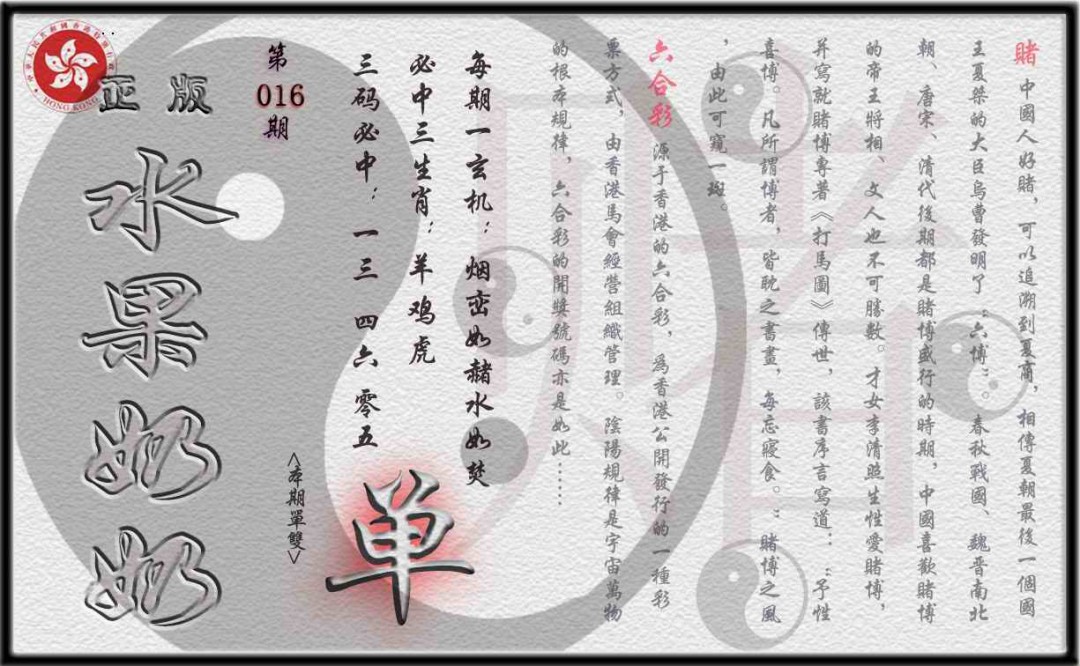 賭 中國人好賭，可以追溯到夏商，相傳夏朝最後一個國
王夏桀的大臣烏曹發明了“六博”。春秋戰國、魏晉南北
朝、唐宋、清代後期都是賭博盛行的時期，中國喜歡賭博
的帝王將相、文人也不可勝數。才女李清照生性愛賭博，
并寫就賭博專著《打馬圖》傳世，該書序言寫道：“予性
喜博。凡所謂博者，皆耽之書畫，每忘寢食。”賭博之風
，由此可窺一斑。
六合彩 源于香港的六合彩，為香港公開發行的一種彩
票方式，由香港馬會經營組織管理。陰陽規律是宇宙萬物
的根本規律，六合彩的開獎號碼亦是如此……
每期一玄机：烟峦如赭水如焚
必中三生肖：羊鸡虎
三码必中：一三 四六 零五
单
<本期單雙>
第
016
期
正版
水果奶奶
HONG KONG
賭